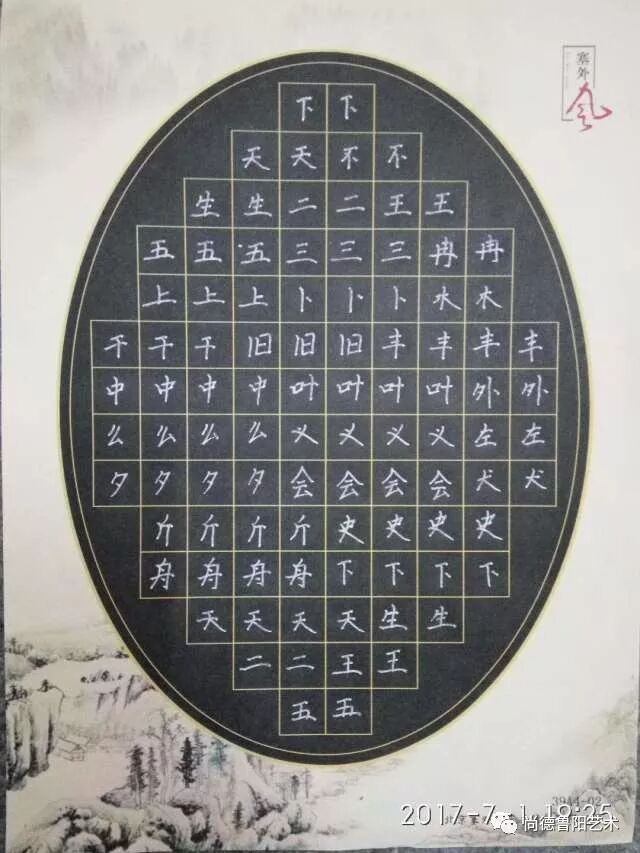 塞外
风
下下
天天不不
生生二二王王
五五五三三三冉冉
上上上卜卜卜木木
干干干旧旧旧丰丰丰丰
中中中中叶叶叶叶外外
么么么么义义义义左左
夕夕夕夕会会会会犬犬
斤斤斤斤史史史史
舟舟舟舟下下下下
天天天天生生
二二王王
五五
2017-7-1 19:25
尚德鲁阳艺术